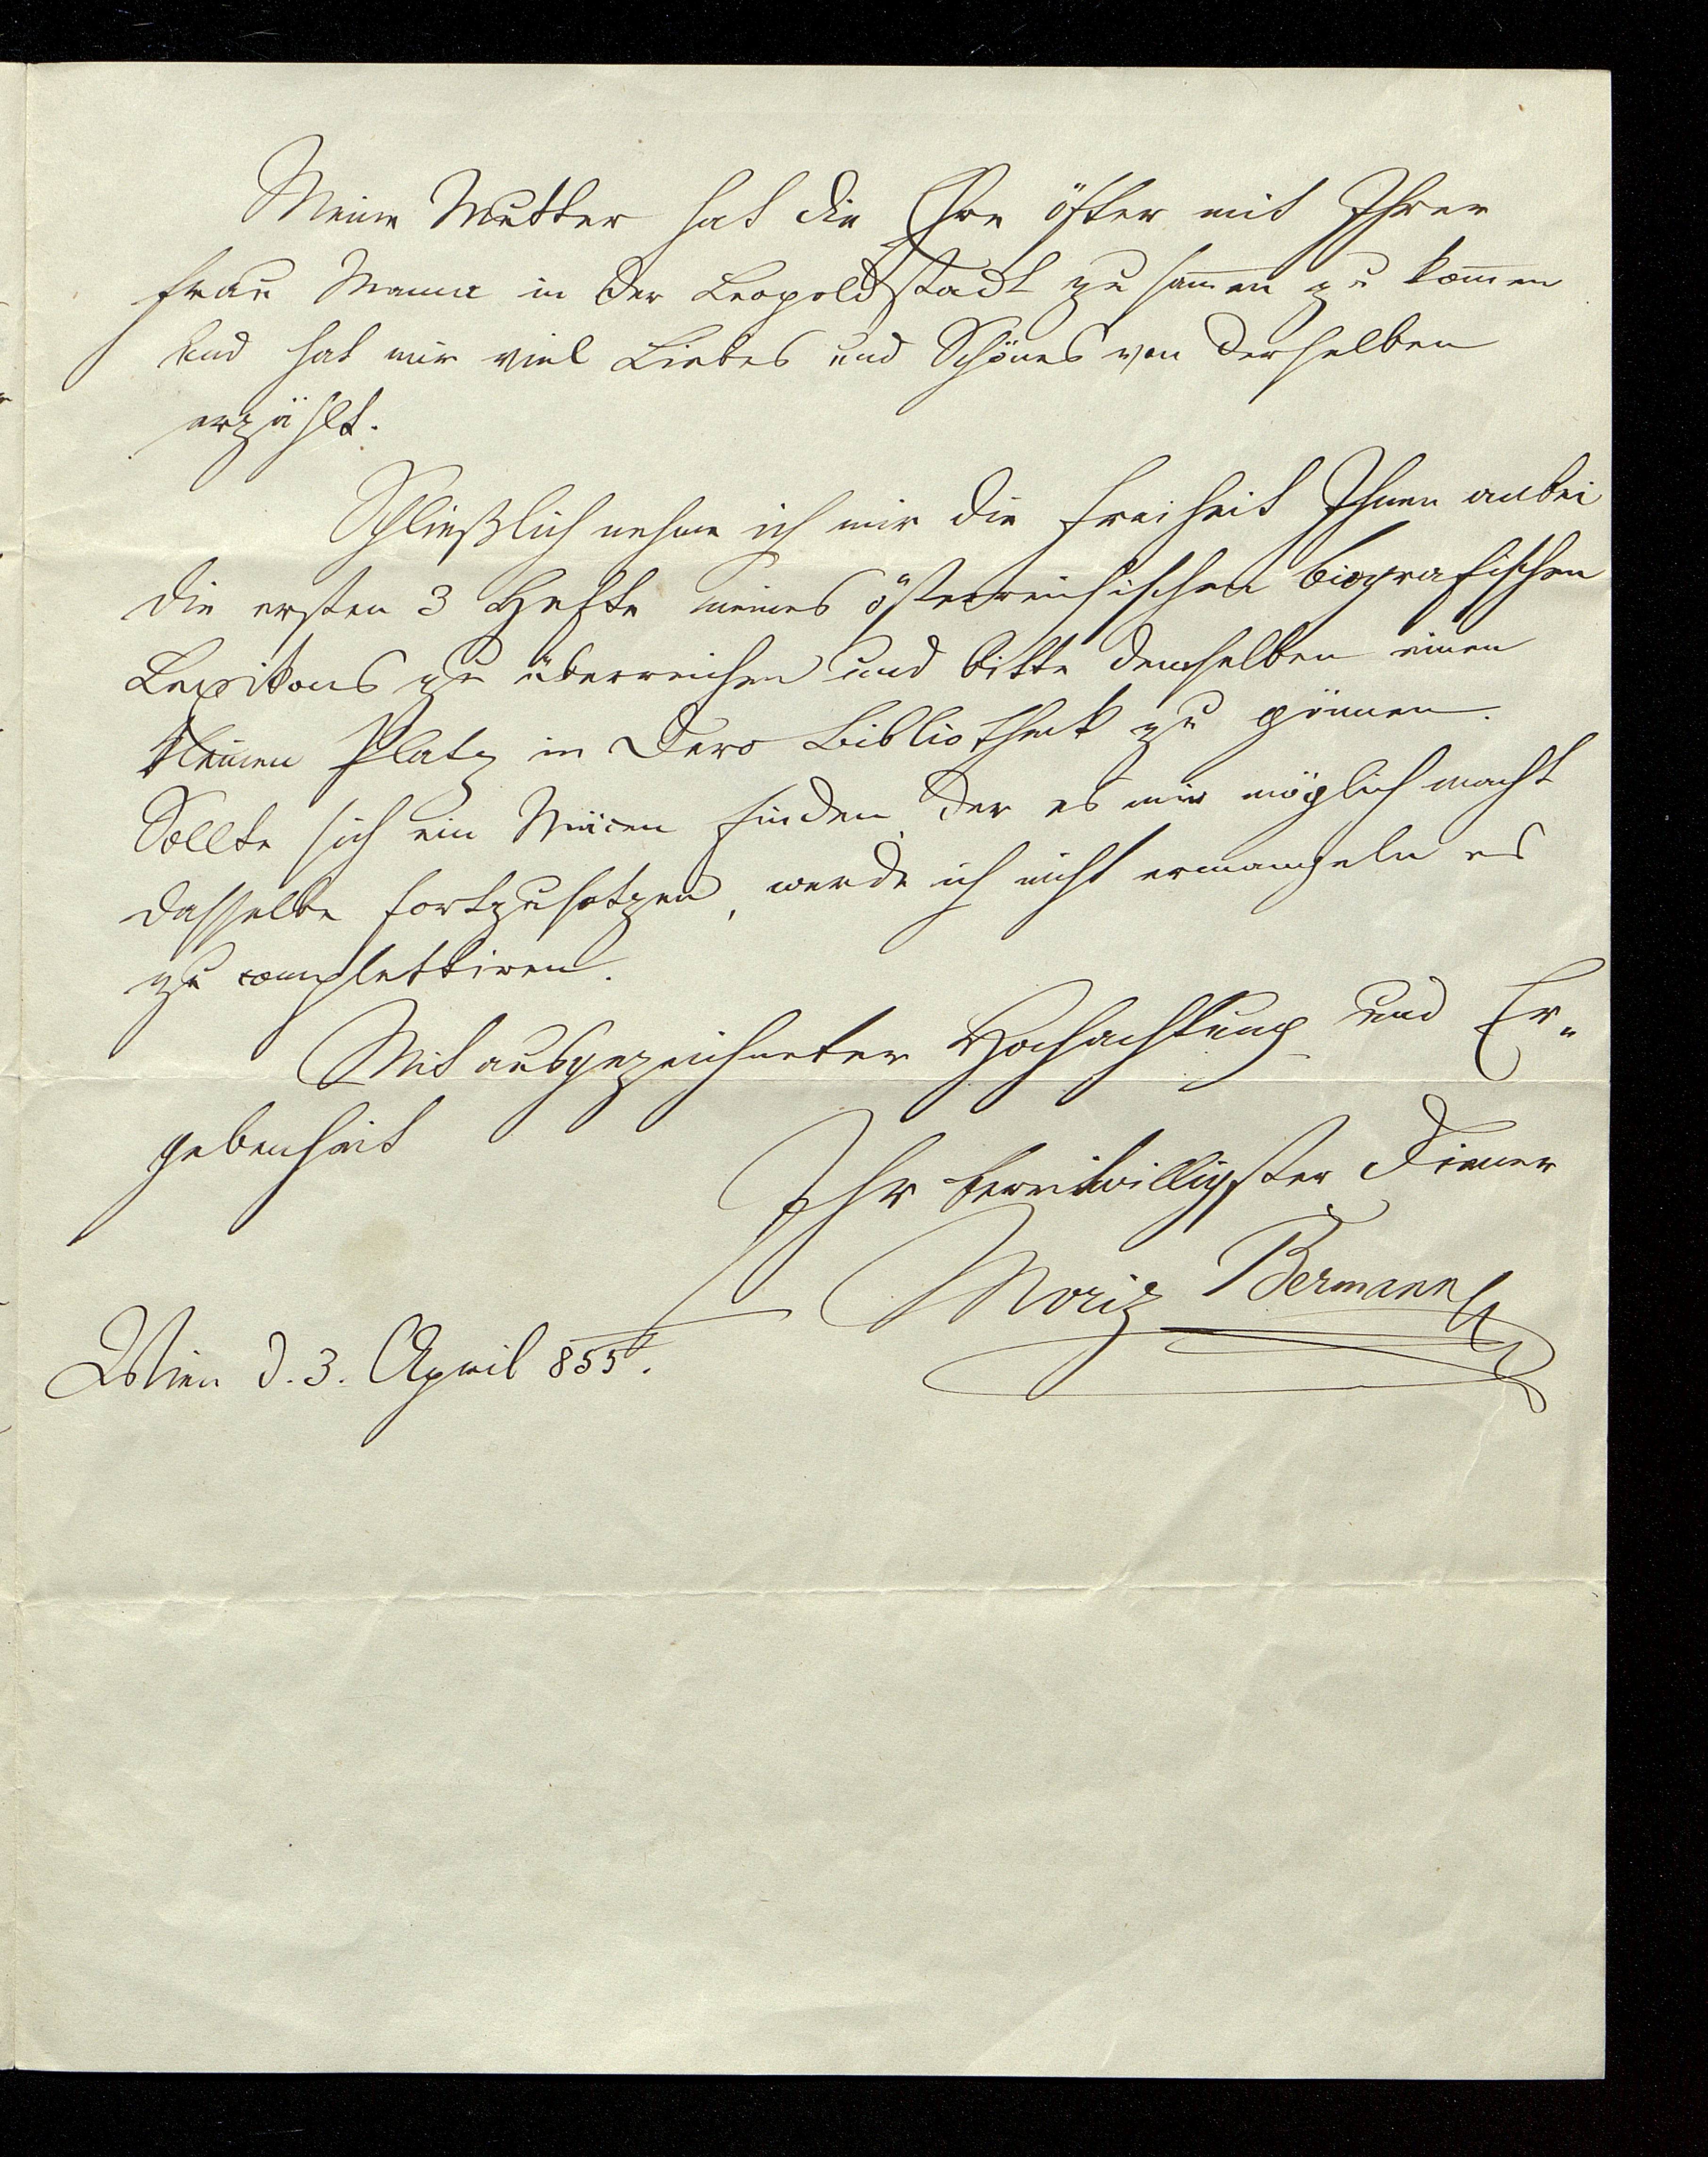 Meine Mutter hat die Ehre öfter mit Ihrer
Frau Mama in der Leopoldstadt zusammen zu kommen
und hat mir viel Liebes und Schönes von derselben
erzählt.
Schließlich nehme ich mir die Freiheit Ihnen anbei
die ersten 3 Hefte meines österreichischen biografischen
Lexikons zu überreichen und bitte demselben einen
kleinen Platz in Dero Bibliothek zu gönnen.
Sollte sich ein Mäcen finden der es mir möglich macht
dasselbe fortzusetzen, werde ich nicht ermangeln es
zu complettiren.
Mit ausgezeichneter Hochachtung und Er-
gebenheit
Ihr bereitwilligster Diener
Moriz Bermann
Wien d. 3. April 855.